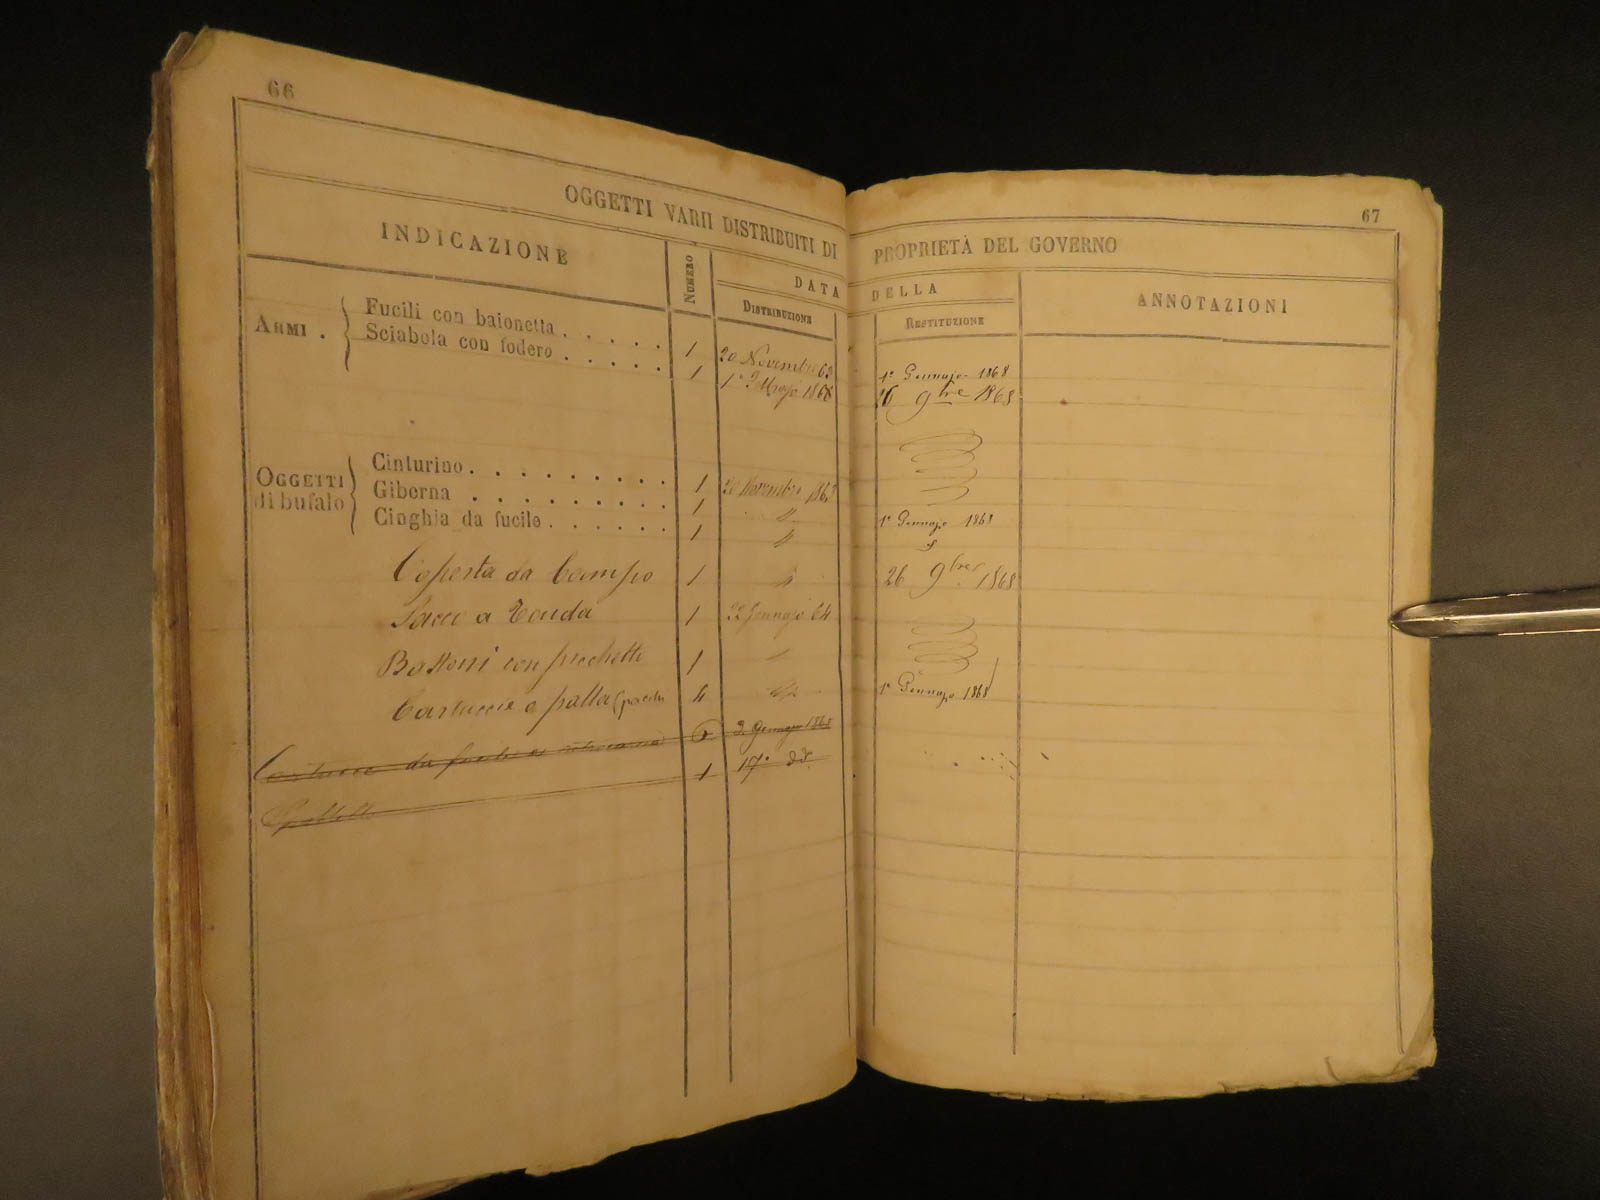 66
OGGETTI VARII DISTRIBUITI DI
INDICAZIONE
NUMERO
DATA
DISTRIBUZIONE
ARMI .
Fucili con baionetta . . . . . 1 20 Novembre 63
Sciabola con fodero . . . . . 1 1° Maggio 1868
OGGETTI di bufalo
Cinturino . . . . . . . . . 1 20 Novembre 1863
Giberna . . . . . . . . . 1 "
Cinghia da fucile . . . . . . 1 "
Coperta da Campo 1 "
Sacco a Tenda 1 22 Gennajo 64
Bastoni con picchetti 1 "
Cartuccie a palla (pacchi 4 "
Cartucce da 6 3. Gennajo 1868
1 17° dd.
67
PROPRIETÀ DEL GOVERNO
DELLA
RESTITUZIONE
ANNOTAZIONI
1° Gennajo 1868
26 9bre 1868
1° Gennajo 1868
26 9bre 1868
1° Gennajo 1868